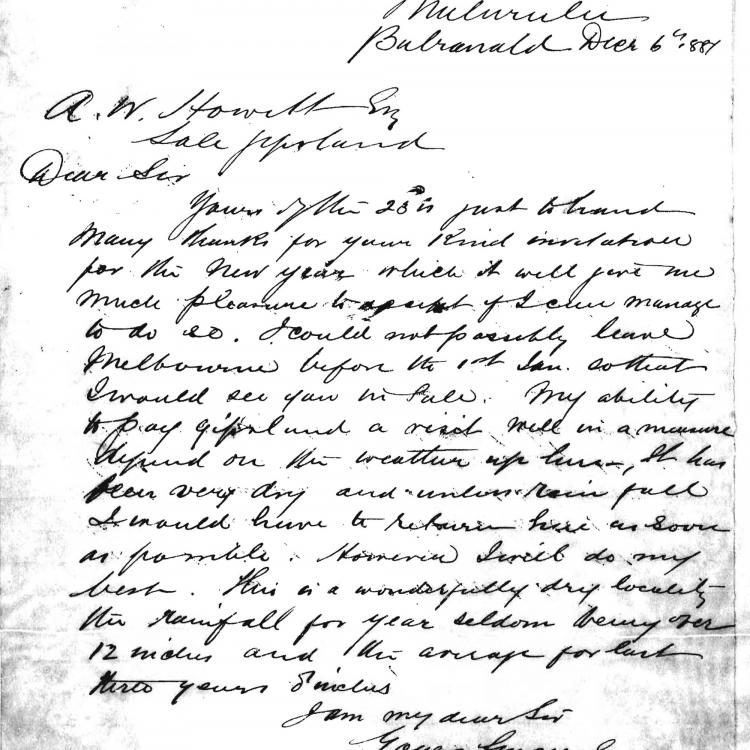 Balranald Decr 6th 1881
A. W. Howitt Esq
Sale Gippsland
Dear Sir
Yours of the 25th is just to hand
Many thanks for your kind invitation
for the New year which it will give me
much pleasure to accept if I can manage
to do so. I could not possibly leave
Melbourne before the 1st Jan. so that
I would see you in Sale. My ability
to pay Gippsland a visit will in a measure
depend on the weather up here, It has
been very dry and unless rain fall
I would have to return here as soon
as possible. However I will do my
best. This is a wonderfully dry locality
the rainfall for year seldom being over
12 inches and the average for last
three years 8 inches
I am my dear Sir
Yours